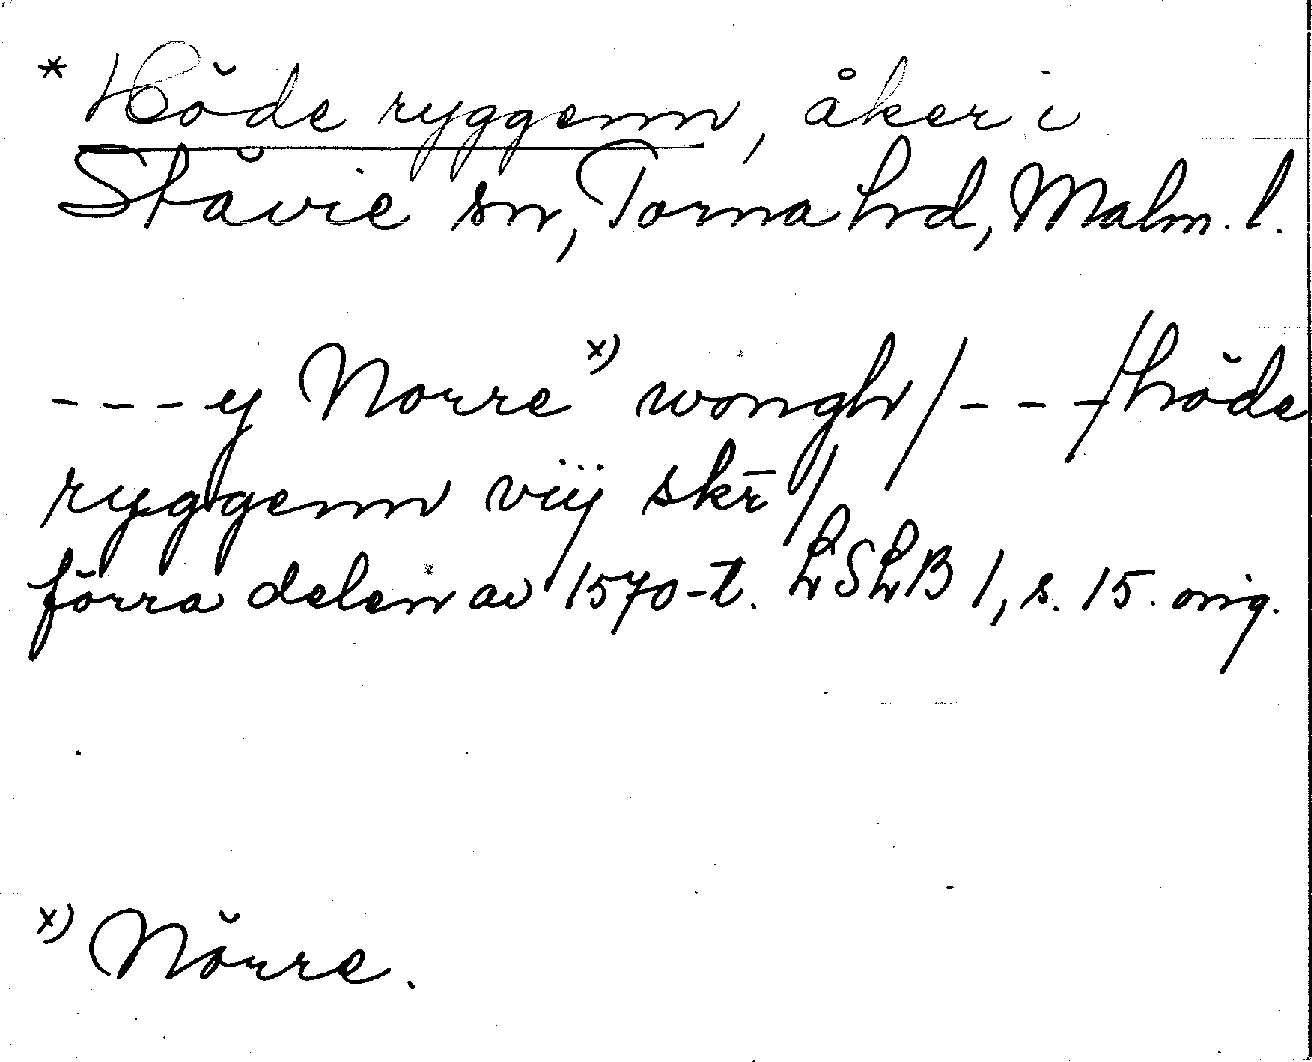 * Hŏde ryggenn, åker i
Stăvie sn, Torna hd, Malm. l.
---y Norre x) wongh/---/hŏde
ryggenn viij skr̄/
förra delen av 1570-t. LSLB 1, s. 15. orig.
x) Nŏrre.